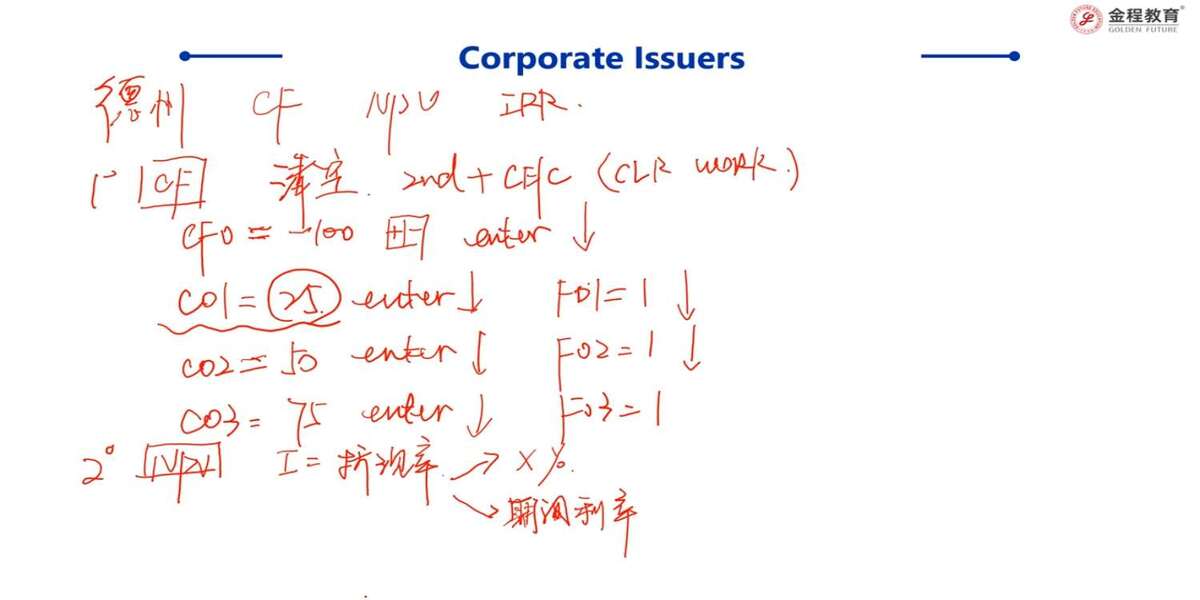 金程教育®
GOLDEN FUTURE
Corporate Issuers
德州 CF NPV IRR.
1° CF 清空. 2nd + CE|C (CLR WORK.)
CF0 = -100 +|- enter ↓
C01 = 25. enter ↓ F01 = 1 ↓
C02 = 50 enter ↓ F02 = 1 ↓
C03 = 75 enter ↓ F03 = 1
2° NPV I = 折现率. → X%.
→ 期间利率